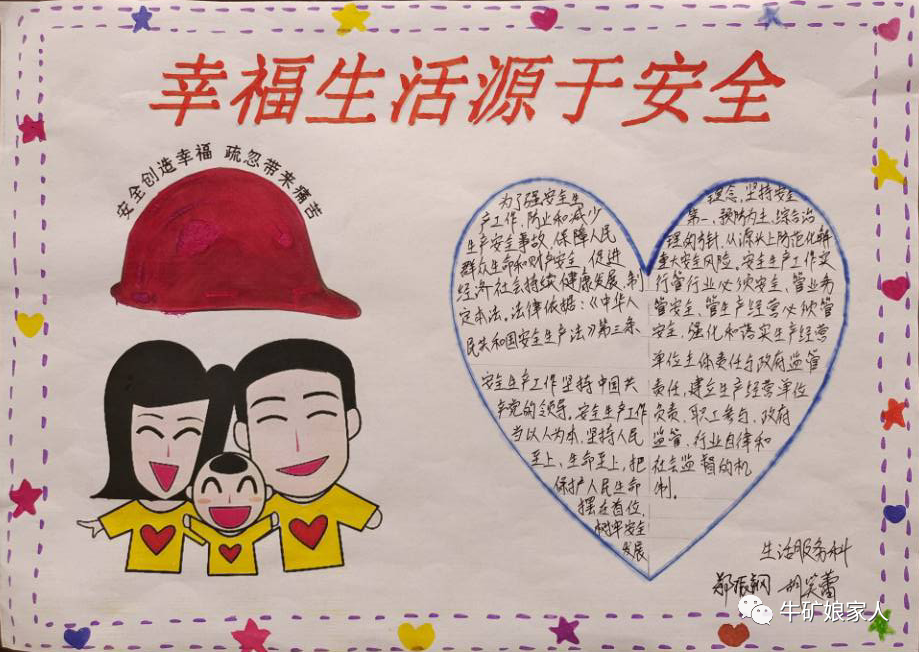 幸福生活源于安全
安全创造幸福 疏忽带来痛苦
为了强安全生
产工作,防止和减少
生产安全事故,保障人民
群众生命和财产安全,促进
经济社会持续健康发展,制
定本法。法律依据:《中华人
民共和国安全生产法》第三条
安全生产工作坚持中国共
产党的领导,安全生产工作
当以人为本,坚持人民
至上、生命至上,把
保护人民生命
摆在首位,
树牢安全
发展
理念,坚持安全
第一、预防为主、综合治
理的方针,从源头上防范化解
重大安全风险。安全生产工作实
行管行业必须安全、管业务
管安全、管生产经营必须管
安全,强化和落实生产经营
单位主体责任与政府监管
责任,建立生产经营单位
负责、职工参与、政府
监管、行业自律和
社会监督的机
制。
生活服务科
郑振钢 胡笑蕾
牛矿娘家人